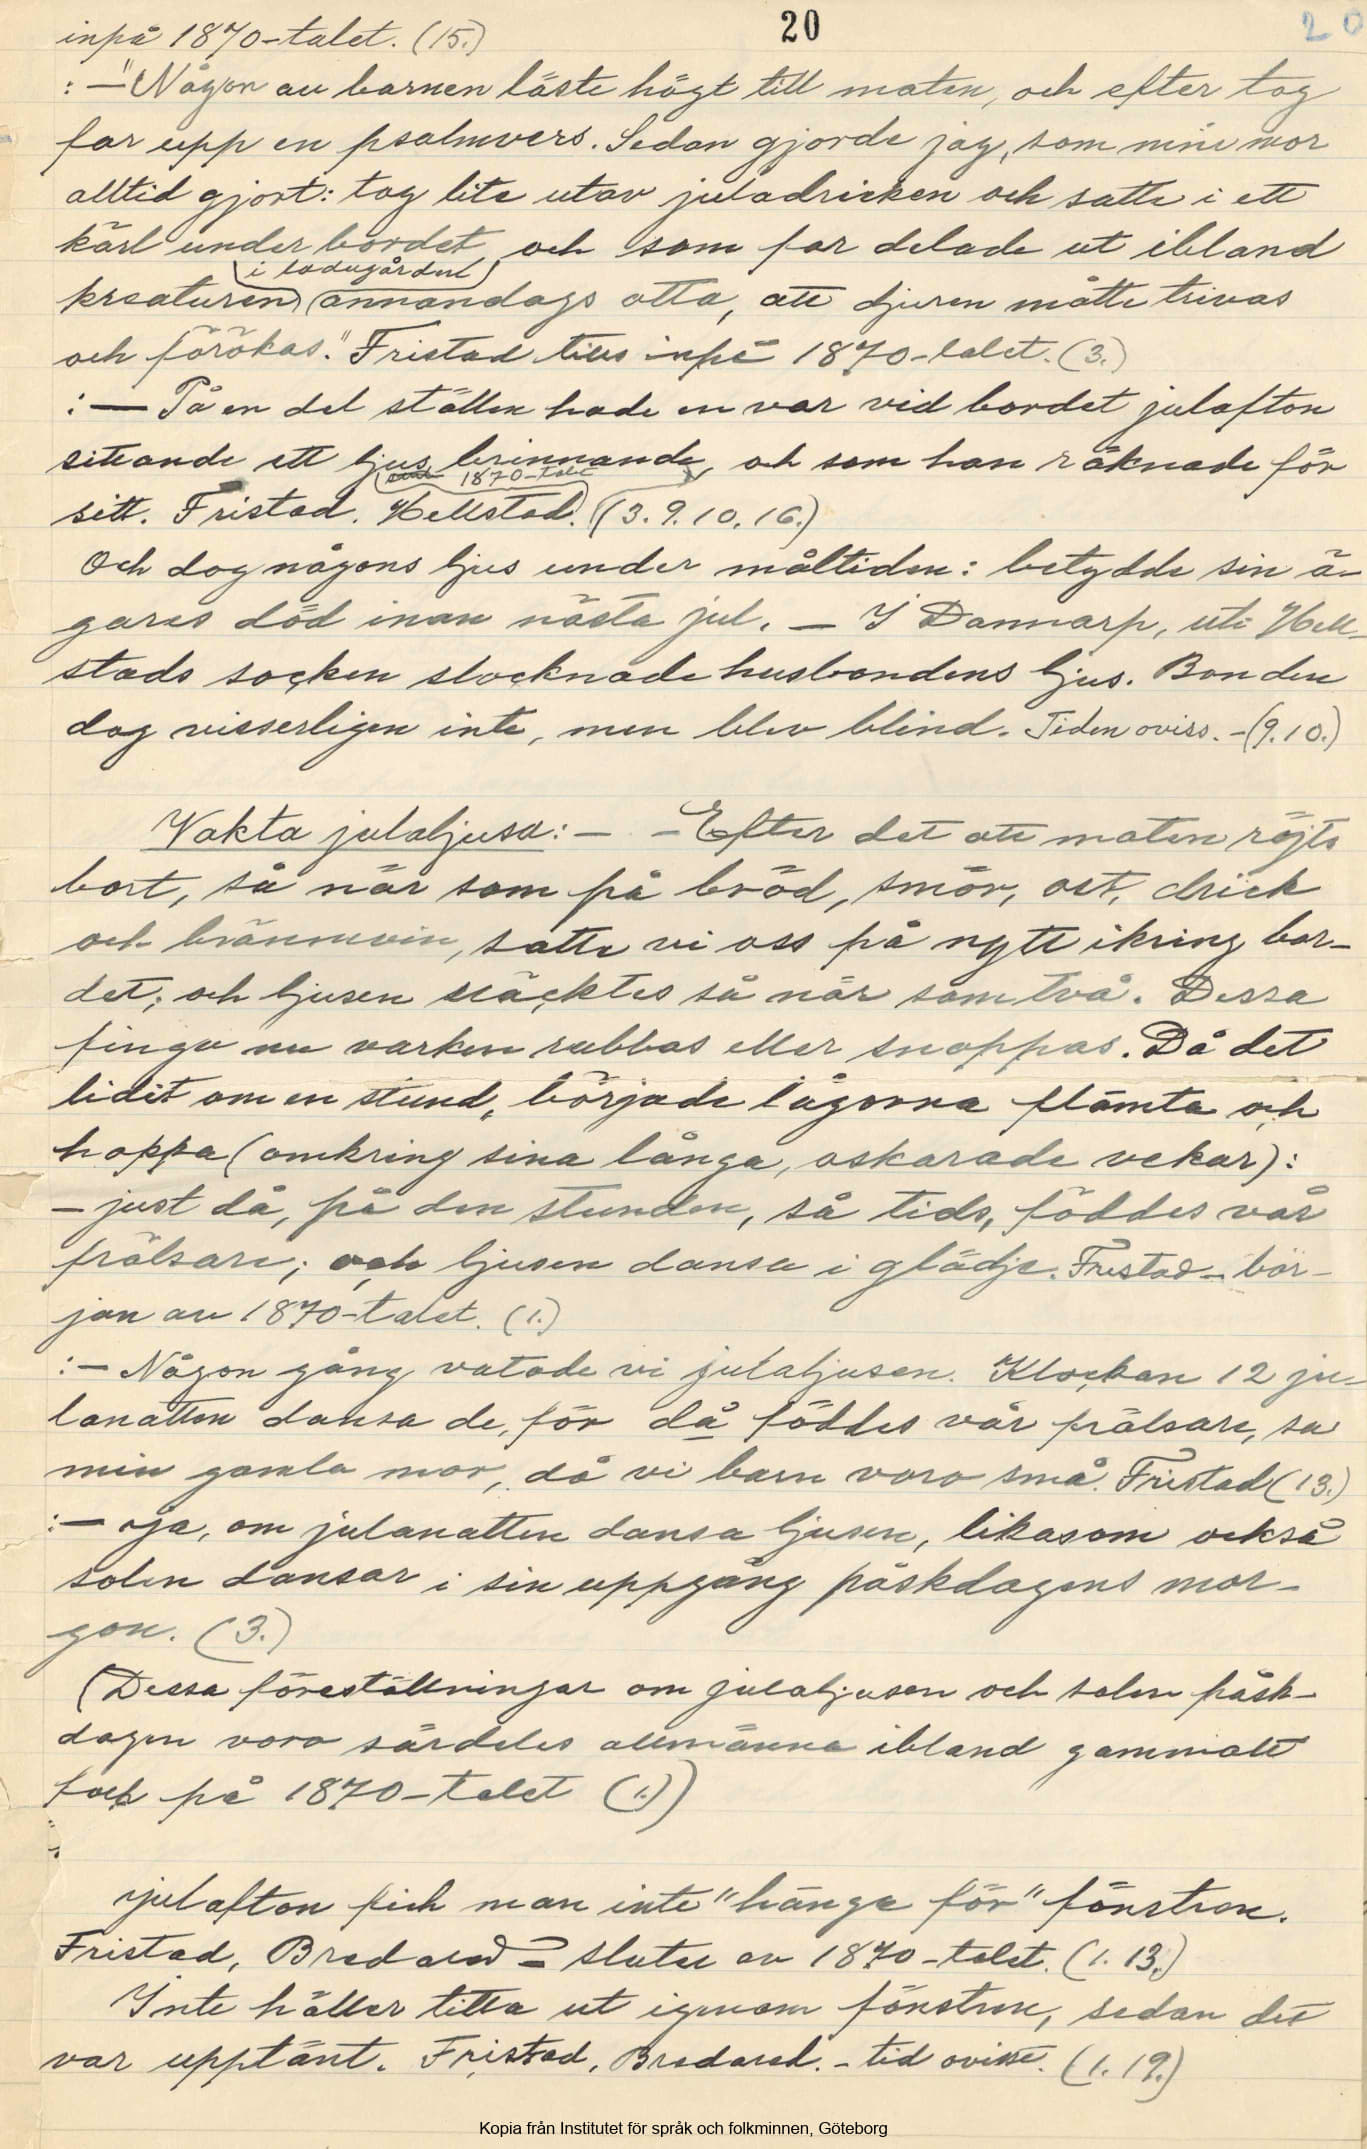 20
20
inpå 1870-talet. (15.)
: —"Någon av barnen läste högt till maten, och efter tog
far upp en psalmvers. Sedan gjorde jag, som mine mor
alltid gjort: tog lite utav juladricken och satte i ett
kärl under bordet, och som far delade ut ibland
i ladugården
kreaturen annandags otta, att djuren måtte trivas
och förökas." Fristad tills inpå 1870-talet. (3.)
: — På en del ställen hade en var vid bordet julafton
sittande ett ljus brinnande, och som han räknade för
1870-talet
sitt. Fristad. Hellstad. (3. 9. 10. 16.)
Och dog någons ljus under måltiden: betydde sin ä-
gares död inan nästa jul. — I Dannarp, uti Hell-
stads socken slocknade husbondens ljus. Bonden
dog visserligen inte, men blev blind. Tiden oviss. - (9. 10.)
Vakta julaljusa: — - Efter det att maten röjts
bort, så när som på bröd, smör, ost, drick
och brännvin, satte vi oss på nytt ikring bor-
det; och ljusen släcktes så när som två. Dessa
fingo nu varken rubbas eller snoppas. Då det
lidit om en stund, började lågorna flämta och
hoppa (omkring sina långa, oskarade vekar):
— just då, på den stunden, så tids, föddes vår
frälsare; och ljusen dansa i glädje. Fristad - bör-
jan av 1870-talet. (1.)
: — Någon gång vatade vi julaljusen. Klockan 12 ju-
lanatten dansa de, för då föddes vår frälsare, sa
min gamla mor, då vi barn voro små. Fristad (13.)
: — Ja, om julanatten dansa ljusen, likasom också
solen dansar i sin uppgång påskdagens mor-
gon. (3.)
(Dessa föreställningar om julaljusen och solen påsk-
dagen voro särdeles allmänna ibland gammalt
folk på 1870-talet (1.))
Julafton fick man inte "hänga för" fönstren.
Fristad, Bredared - slutet av 1870-talet. (1. 13.)
Inte häller titta ut igenom fönstren, sedan det
var upptänt. Fristad, Bredared. - tid ovisst. (1. 19.)
Kopia från Institutet för språk och folkminnen, Göteborg